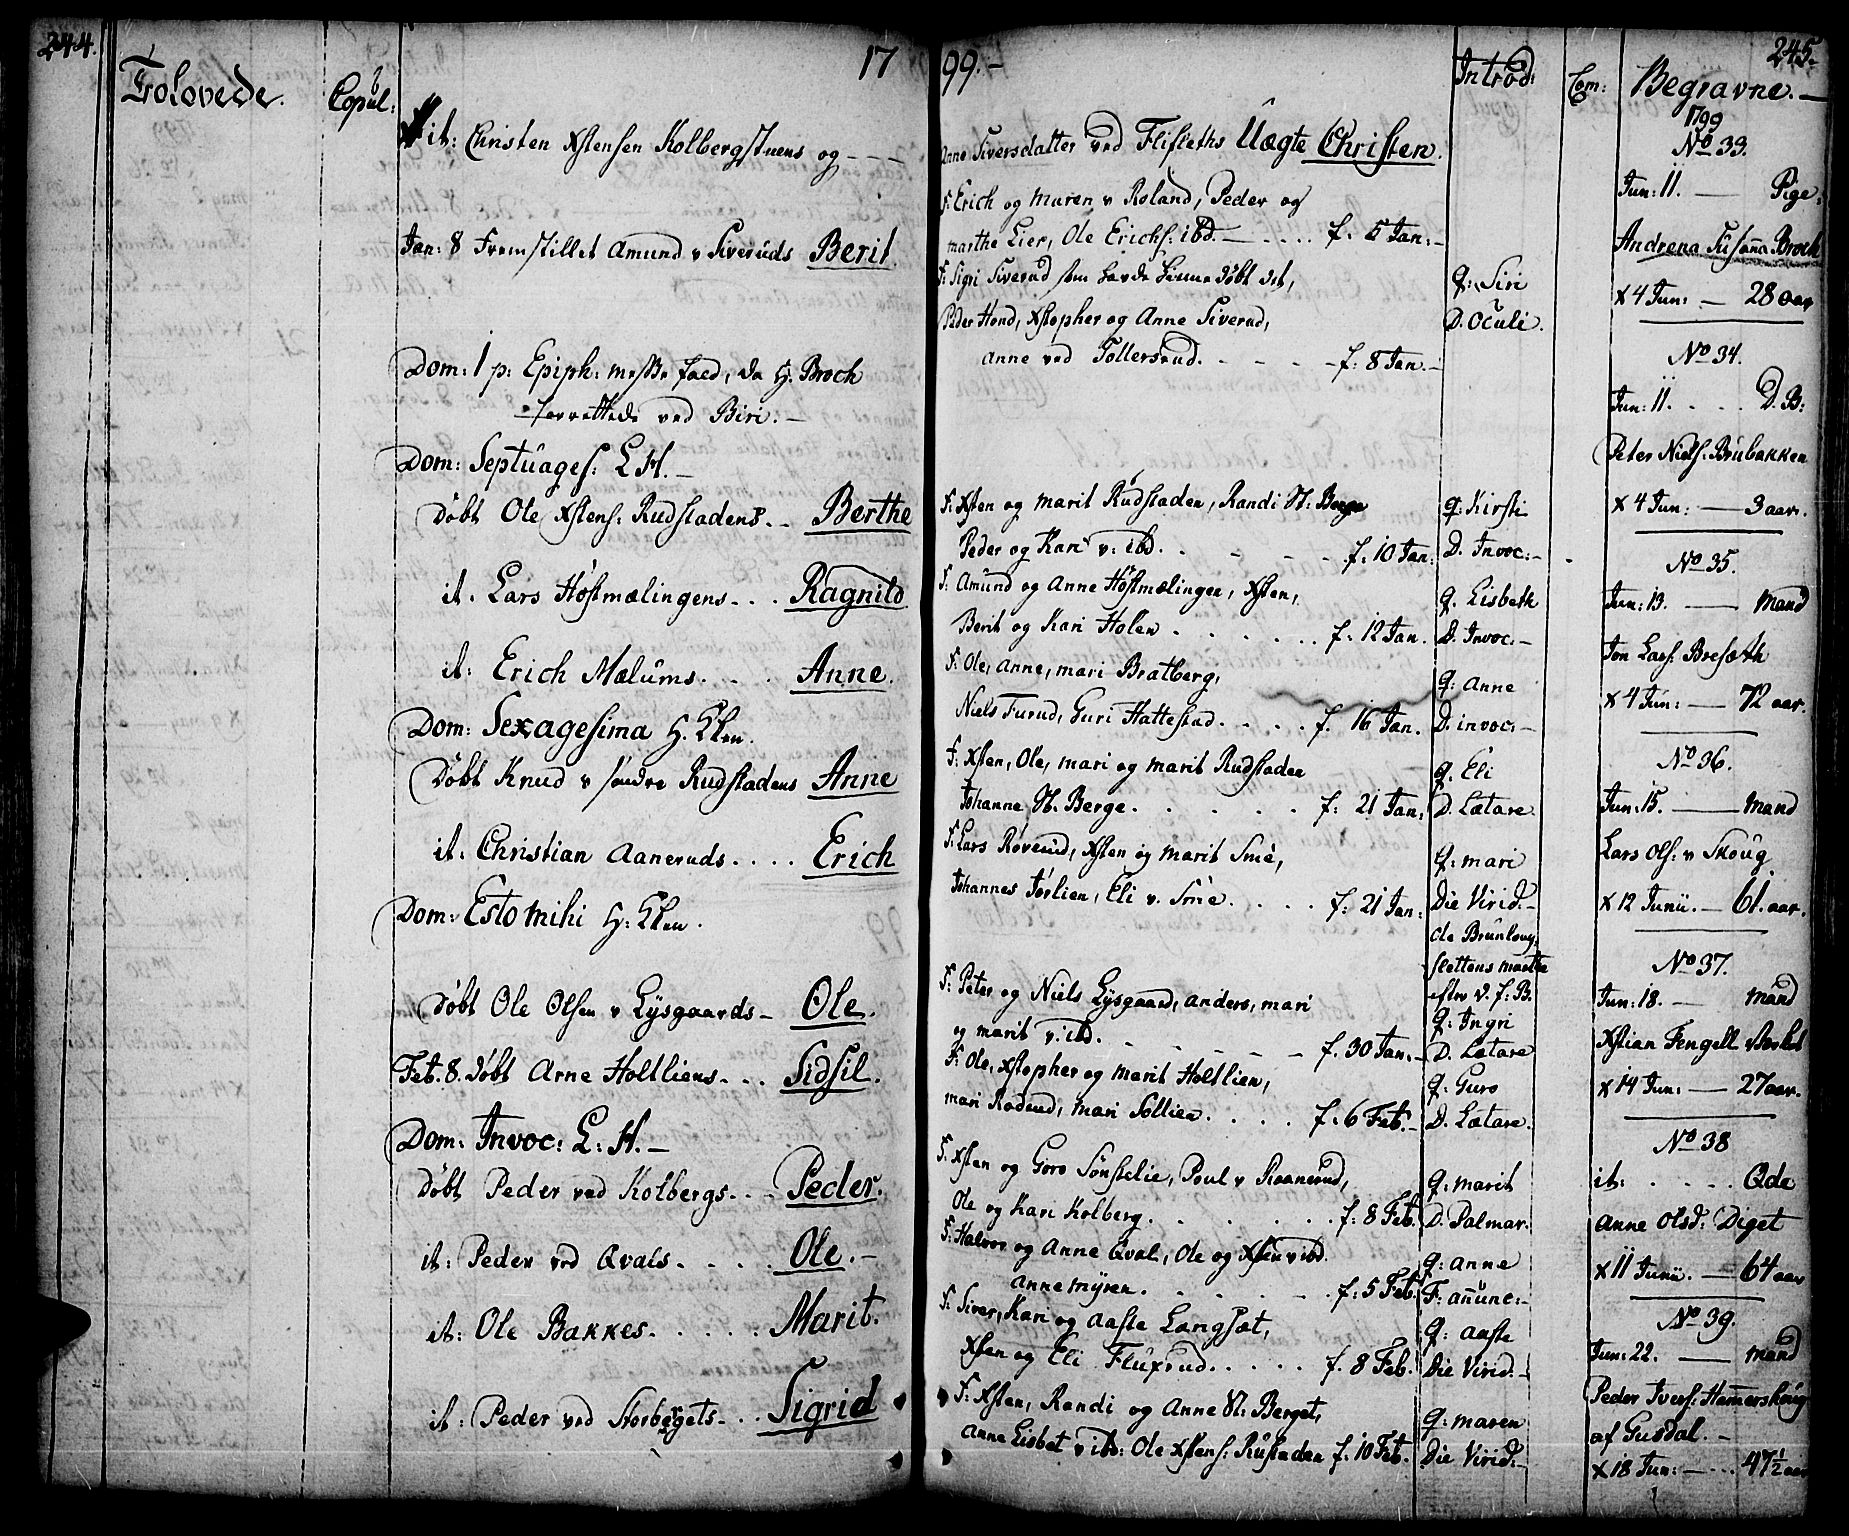 244.
17
Trolovede.
Copul:
it: Christen Xstensen Kolbergstuens og - - -
Jan: 8 Fremstillet Amund v Siveruds Berit.
Dom: 1 p: Epiph: Messe fald, da H. Broch
forrettede ved Biri. -
Dom: Septuages: L H. -
Døbt Ole Xstens: Rudstadens. - Berthe
it. Lars Høstmælingens . . . Ragnild
it: Erich Mælums. . . . Anne.
Dom: Sexagesima H.
Døbt Knud v søndre Rudstadens Anne
it. Christian Aaneruds . . . . Erich
Dom: Esto mihi H:
Døbt Ole Olsen v Lysgaards - Ole.
Feb. 8. døbt Arne Holtliens . . . Sidsil.
Dom: Invoc: L: H. -
døbt Peder ved Kolbergs. . . Peder.
it: Peder ved Qvals. . . . . Ole. -
it: Ole Bakkes. . . . . . Marit.
it: Peder ved Storbergets . . . Sigrid
99. -
Introd:
Com:
245.
Begravne. -
Anne Siversdatter ved Flisleths Uægte Christen.
F: Erich og Maren v Roland, Peder og
Marthe Lier, Ole Erichs: ibd. - . . . . f. 5 Jan: -
F: Sigri Siverud som havde hiemmedøbt det,
Peder Hond, Xstopher og Anne Siverud,
Anne ved Tollersrud. . . . - f: 8 Jan. -
F: Xsten og Marit Rudstaden, Randi St: Berge
Peder og Kari v: ibd. . . . . f. 10 Jan:
F: Amund og Anne Høstmælingen, Xsten,
Berit og Kari Holen . . . . . . f: 12 Jan.
F: Ole, Anne, Mari Bratberg,
Niels Furud, Guri Hattestad. . . . . f. 16 Jan.
F: Xsten, Ole, Mari og Marit Rudstaden
Johanne St. Berge. . . . . . f: 21 Jan:
F: Lars Røverud, Xsten og Marit Smé,
Johannes Jørlien, Eli v. Smé . . . . . f: 21 Jan:
F: Peter og Niels Lysgaard, Anders, Mari
og Marit v. ibd. . . . . . f. 30 Jan. -
F: Ole, Xstopher og Marit Holtlien,
Mari Rodend, Mari Sollien. . . . . f. 6 Feb. -
F: Xsten og Goro Sønstelie, Poul v Raanerud,
Ole og Kari Kolberg. . . . . . . f: 8 Feb.
F: Halvor og Anne Qval, Ole og Xsten v ibd.
Anne Myren. . . . . . . f: 5 Feb.
F: Siver, Kari og Aaste Langsæt,
Xsten og Eli Fluxrud. . . . . . f. 8 Feb.
F: Xsten, Randi og Anne St: Berget,
Anne Lisbet v ibd: Ole Xstens: Rustaden f. 10 Feb.
q: Siri
D. Oculi.
q: Kirsti
D. Invoc: -
q. Lisbeth
D. Invoc: -
q: Anne
D. invoc: -
q. Eli
D. Lætare.
q: Mari
Die Virid: -
slettens Marthe
q: Ingri
D. Lætare
q: Guro
D. Lætare.
q: Marit
D. Palmar.
q: Anne
F: anunc: -
q: Aaste
Die Virid: -
q: Maren
Die Virid: -
1799
No 33.
Jun: 11. - Pige:
Andrena Susanna Broch
x 4 Jun: - 28 aar
No 34.
Jun: 11. . . . D. B:
Peter Niels: Brubakken
x 4 Jun: - 3 aar.
No 35.
Jun: 13. - Mand
Jon Lars: Bresæth
x 4 Jun: - 72 aar.
No 36.
Jun: 15. - Mand
Lars Ols: v Skoug
x 12 Junii. - 61. aar.
No 37.
Jun: 18. - Mand
Xstian Fengell
x 14 Jun: - 27 aar.
No 38
it: . . . . Qde
Anne Olsd: Diget
x 11 Junii. - 64 aar
No 39.
Jun: 22. - Mand
Peder Ivers: Hammerskoug
af Gusdal. -
x 18 Jun: - . . 47 1/2 aar